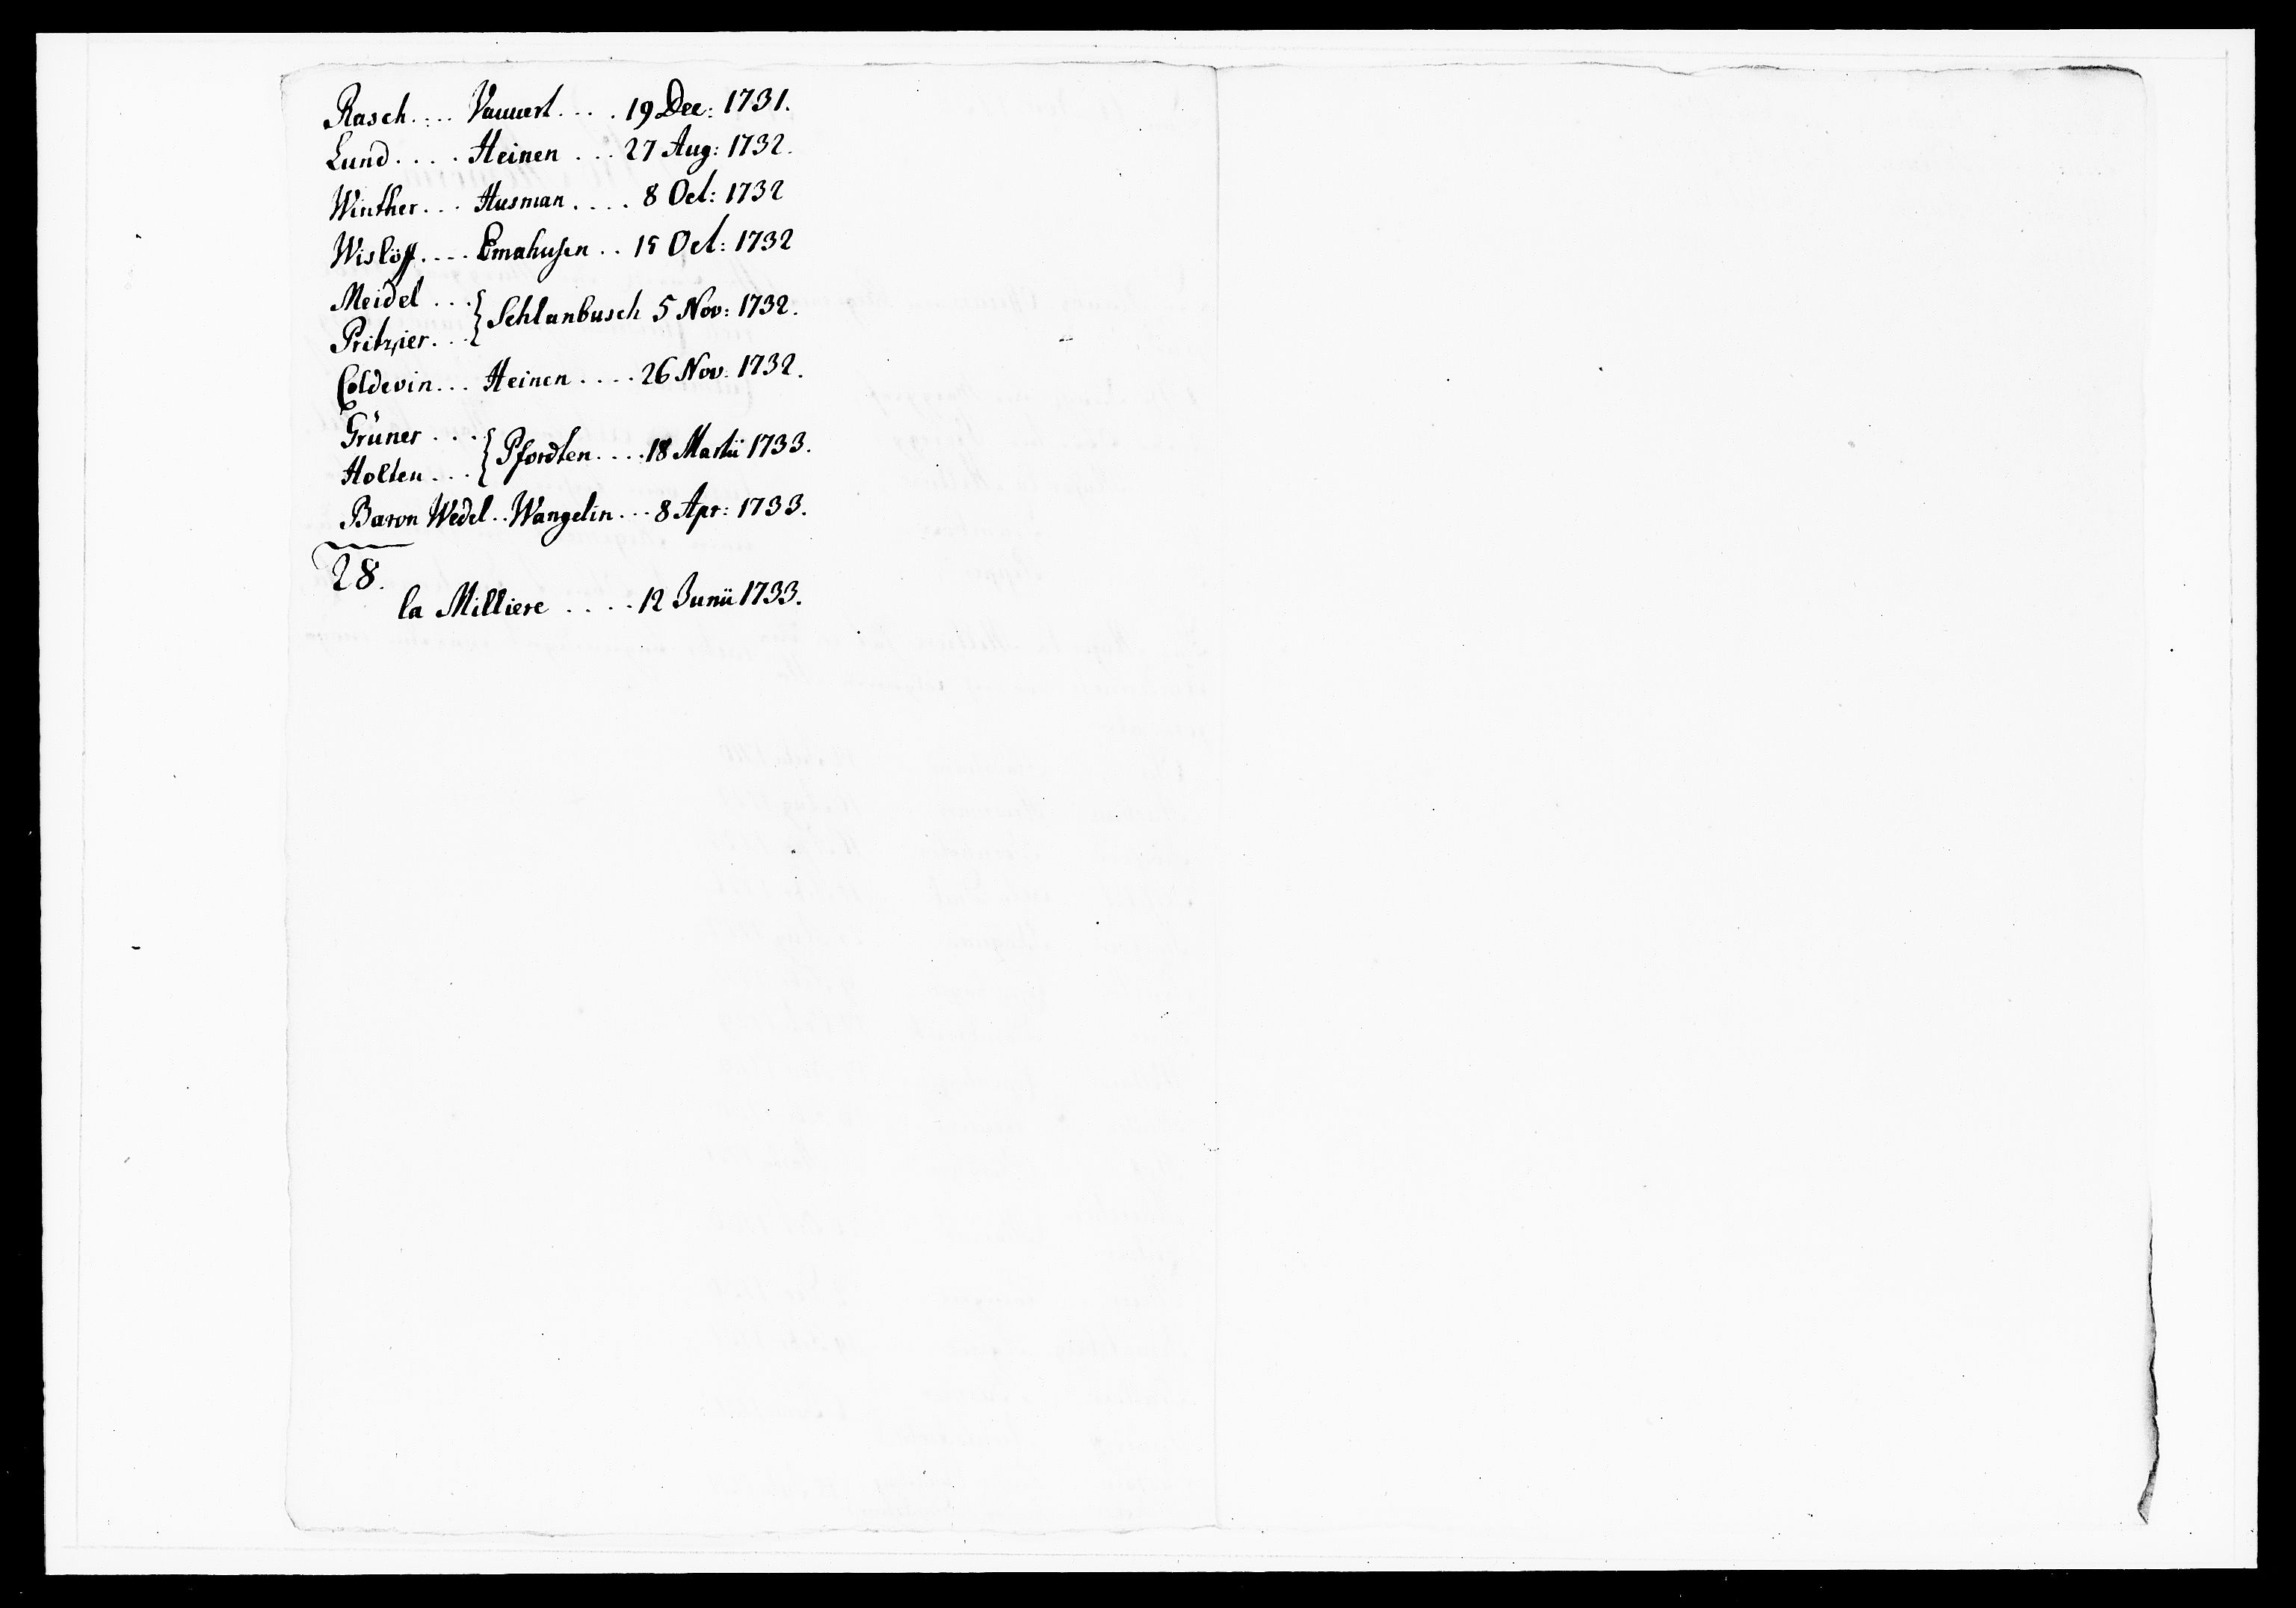 Rasch.... Vauuert.... 19 Dec: 1731.
Lund.... Heinen ... 27 Aug: 1732.
Winther... Husman.... 8 Oct: 1732
Wislöff.... Emahusen .. 15 Oct: 1732
Meidel ...
Pritzier... } Schlanbusch 5 Nov: 1732.
Coldevin... Heinen .... 26 Nov. 1732.
Grüner ...
Holten ... } Pfordten.... 18 Martii 1733.
Baron Wedel.. Wangelin... 8 Apr: 1733.
28.
la Milliere .... 12 Junii 1733.